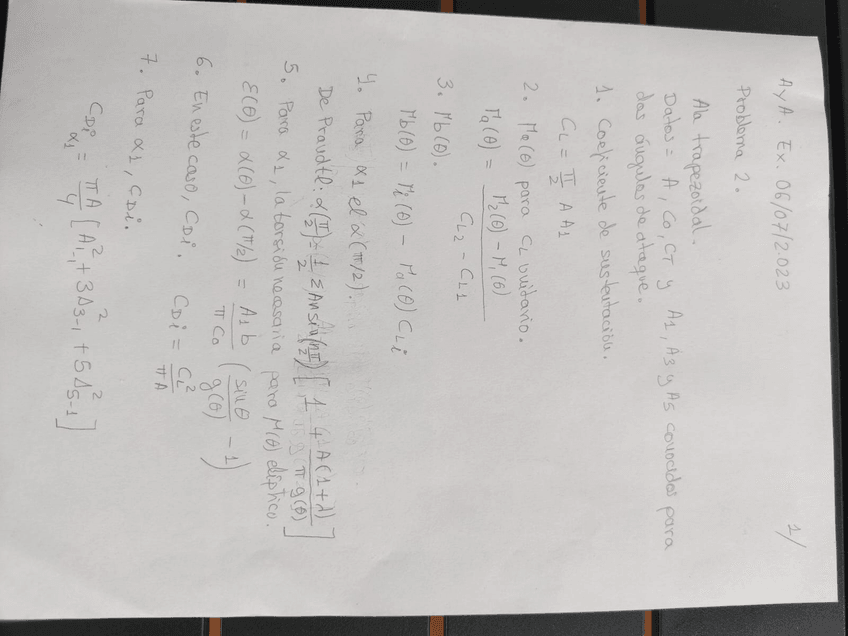 AyA. Ex. 06/07/2023 1/
Problema 2.
Ala trapezoidal.
Datos = A, Co, CT y A1, A3 y A5 conocidos para
dos ángulos de ataque.
1. Coeficiente de sustentación.
CL = π/2 A A1
2. Ma(θ) para CL unitario.
Ma(θ) = (M2(θ) - M1(θ)) / (CL2 - CL1)
3. Mb(θ).
Mb(θ) = Mi(θ) - Ma(θ) CLi
4. Para α1 el α(π/2).
De Prandtl: α(π/2) = 1/2 Σ An sin(nπ/2) [
5. Para α1, la torsión necesaria para M(θ) elíptico.
ε(θ) = α(θ) - α(π/2) = A1b/πCo (sinθ/g(θ) - 1)
6. En este caso, CDi. CDi = CL²/πA
7. Para α1, CDi.
CDi α1 = πA/4 [A²1-1 + 3A²3-1 + 5A²5-1]